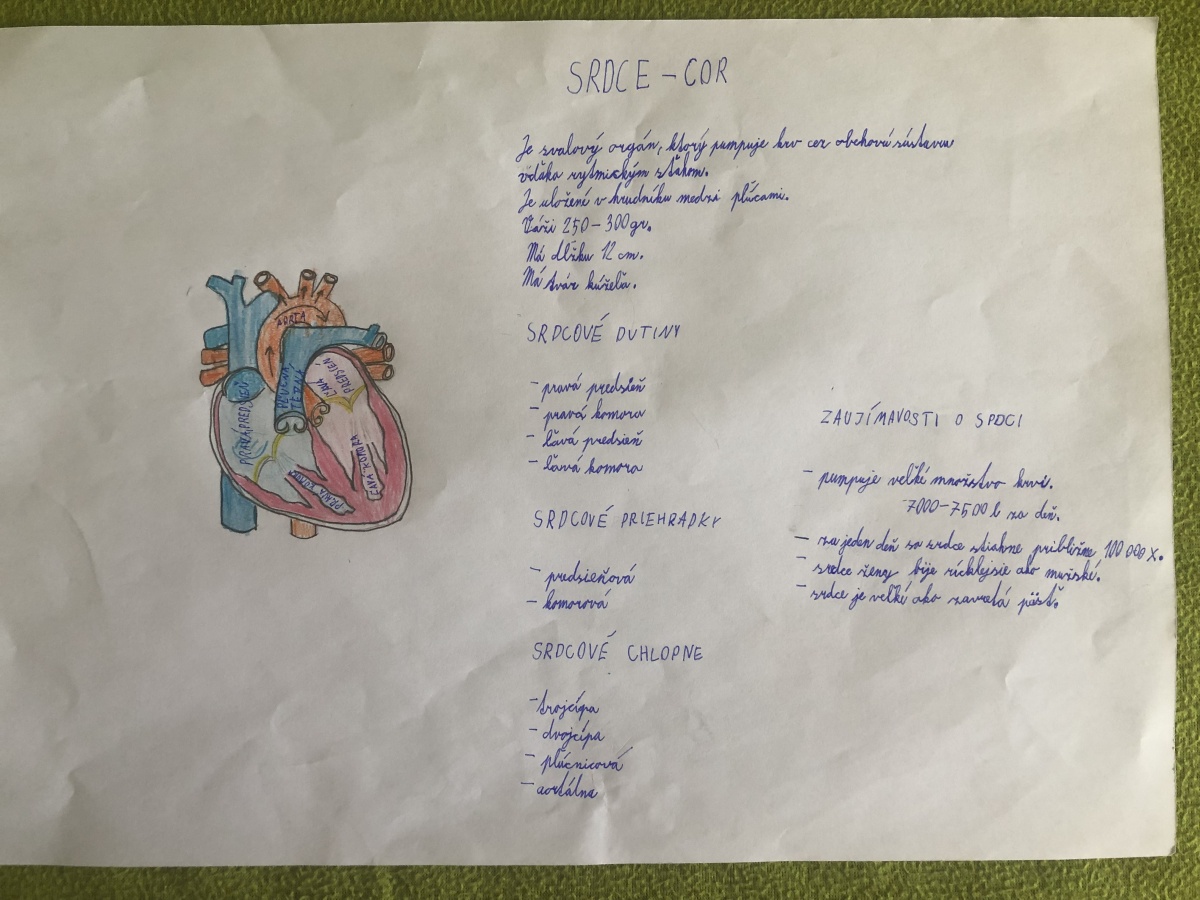 SRDCE – COR
Je svalový orgán, ktorý pumpuje krv cez obehovú sústavu
vďaka rytmickým sťahom.
Je uložené v hrudníku medzi pľúcami.
Váži 250–300gr.
Má dlžku 12 cm.
Má tvar kúžeľa.
SRDCOVÉ DUTINY
- pravá predsieň
- pravá komora
- ľavá predsieň
- ľavá komora
SRDCOVÉ PRIEHRADKY
- predsieňová
- komorová
SRDCOVÉ CHLOPNE
- trojcípa
- dvojcípa
- pľúcnicová
- aortálna
ZAUJÍMAVOSTI O SRDCI
- pumpuje veľké množstvo krvi.
7000–7500 l za deň.
- za jeden deň sa srdce stiahne približne 100 000 X.
- srdce ženy bije rýchlejsie ako mužské.
- srdce je veľké ako zavretá päsť.
AORTA
PĽÚCNA
TEPNA
ĽAVÁ
PREDSIEŇ
PRAVÁ PREDSIEŇ
ĽAVÁ KOMORA
PRAVÁ KOMORA